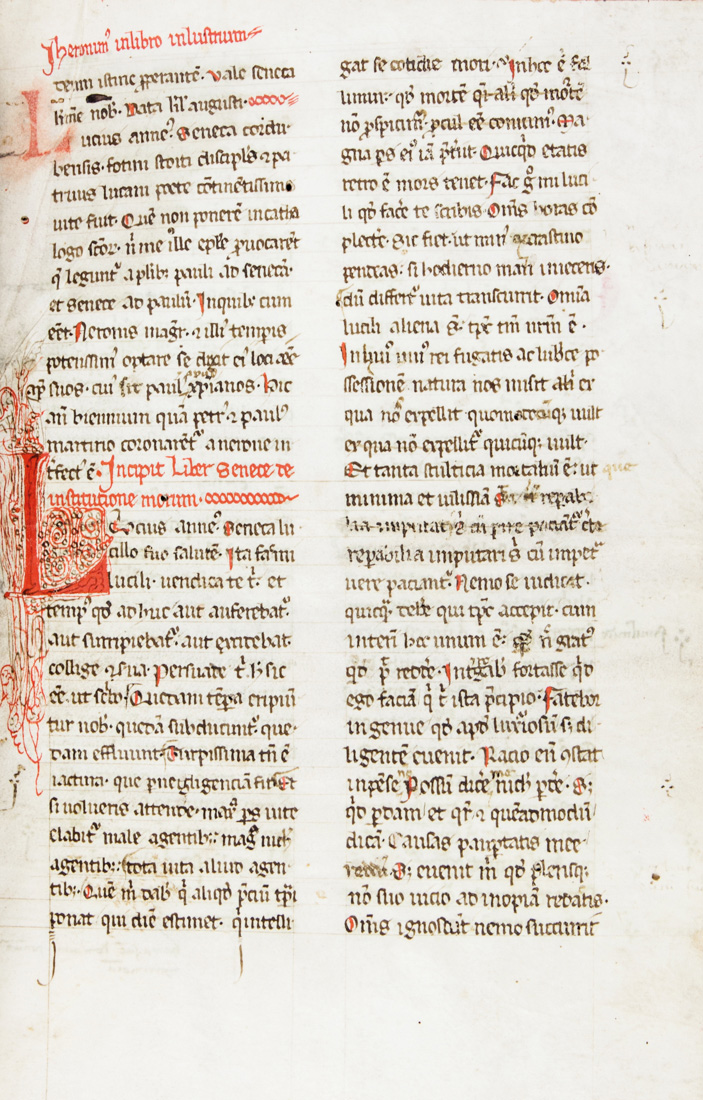 Jheronim' in libro inlustrium
tenim istinc ꝓperantē. Vale seneca
k̅me nob̅. Data kl̅ augusti.
Lucius anne' Seneca cordu-
bensis. fotini stoici discipl's ⁊ pa-
truus lucani poete cōtinētissime
uite fuit. Quē non ponerē in catha
logo sc̅oꝝ. n̄ me ille eple ꝓuocarēt
q̄ legunt᷑ a plib; pauli ad senecā.
et senece ad paulū. In quib; cum
eēt. Neronis mag̅r. ⁊ illi' tempis
potentissim' optare se dixit ei' loci eē
ap̄ suos. cui' sit paul' ap̄ xp̄ianos. hic
an̄ biennium quā petr' ⁊ paul'
martirio coronarēt᷑ a nerone in
t̄fect' ē. Incipit Liber Senece de
institutione morum.
Lucius anne' Seneca lu-
cillo suo salutē. Ita fac mi
lucili. uendica te t̄. et
temp' qd̄ adhuc aut auferebat᷑.
aut surripiebat᷑. aut excidebat.
collige ⁊ s̄ua. Persuade t̄. h̄ sic
eē. ut sc̄bo. Quedam tēpa eripiū
tur nob̄. quedā subducunt᷑. que-
dam effluunt. Turpissima tn̄ ē
iactura. que p neigligenciā fit. Et
si uolueris attende. mag' ps̄ uite
elabit᷑ male agentib;. mag' nich̄
agentib;. tota uita aliud agen
tib;. Quē m̄ dab' q̄ aliqd̄ p̄ciū tp̄ri
ponat qui diē estimet. q̄ intelli
gat se cotidie mori. In hoc ē fal
limur. qd̄ mortē
nō ꝓspicim'. ꝓcul eē Ma-
gna ps̄ ei' iā p̄t̄iit. Quicqd̄ etatis
retro ē mors tenet. Fac g̊ mi luci
li qd̄ fac̄e te sc̄ibis. Om̄s horas cō
plect̄e. Sic fiet. ut min' ex crastino
pendeas. si hodierno man̄ inieceris.
dū differt᷑ uita transcurrit. Omīa
lucili aliena s̄. tp̄c tm̄ nr̄m ē.
In hui' uni' rei fugatis ac lubr̄ce po
ssessionē natura nos misit
qua nō expellit uult
ex qua nō expellit᷑ quicūq; uult.
Et tanta stulticia mortaliū ē. ut que
minima et uilissīa s̄
repabilia imputari s̄ cū impet᷑
uere paciant᷑. Nemo se iudicat.
quicq̄. debe qui tp̄c accepit. cum
interī hoc unum ē. n̄ grat'
qd̄ p̄t redde̅. Int̄gab' fortasse qd̄
ego faciā q̄ t̄ ista p̄cipio. Fatebor
ingenue qd̄ apd̄ luxiosum s; di-
ligentē euenit. Racio eni ꝯstat
inpēse. Possū dic̄e nich̄ p̄d̄e. S;
qd̄ ꝑdam et qr̄. ⁊ quēadmodū
dicā. Causas paup̄tatis mee
S; euenit m̄ qd̄ plerisq;
nō suo uicio ad inopiā redatis.
Om̄s ignoscūt nemo succurrit